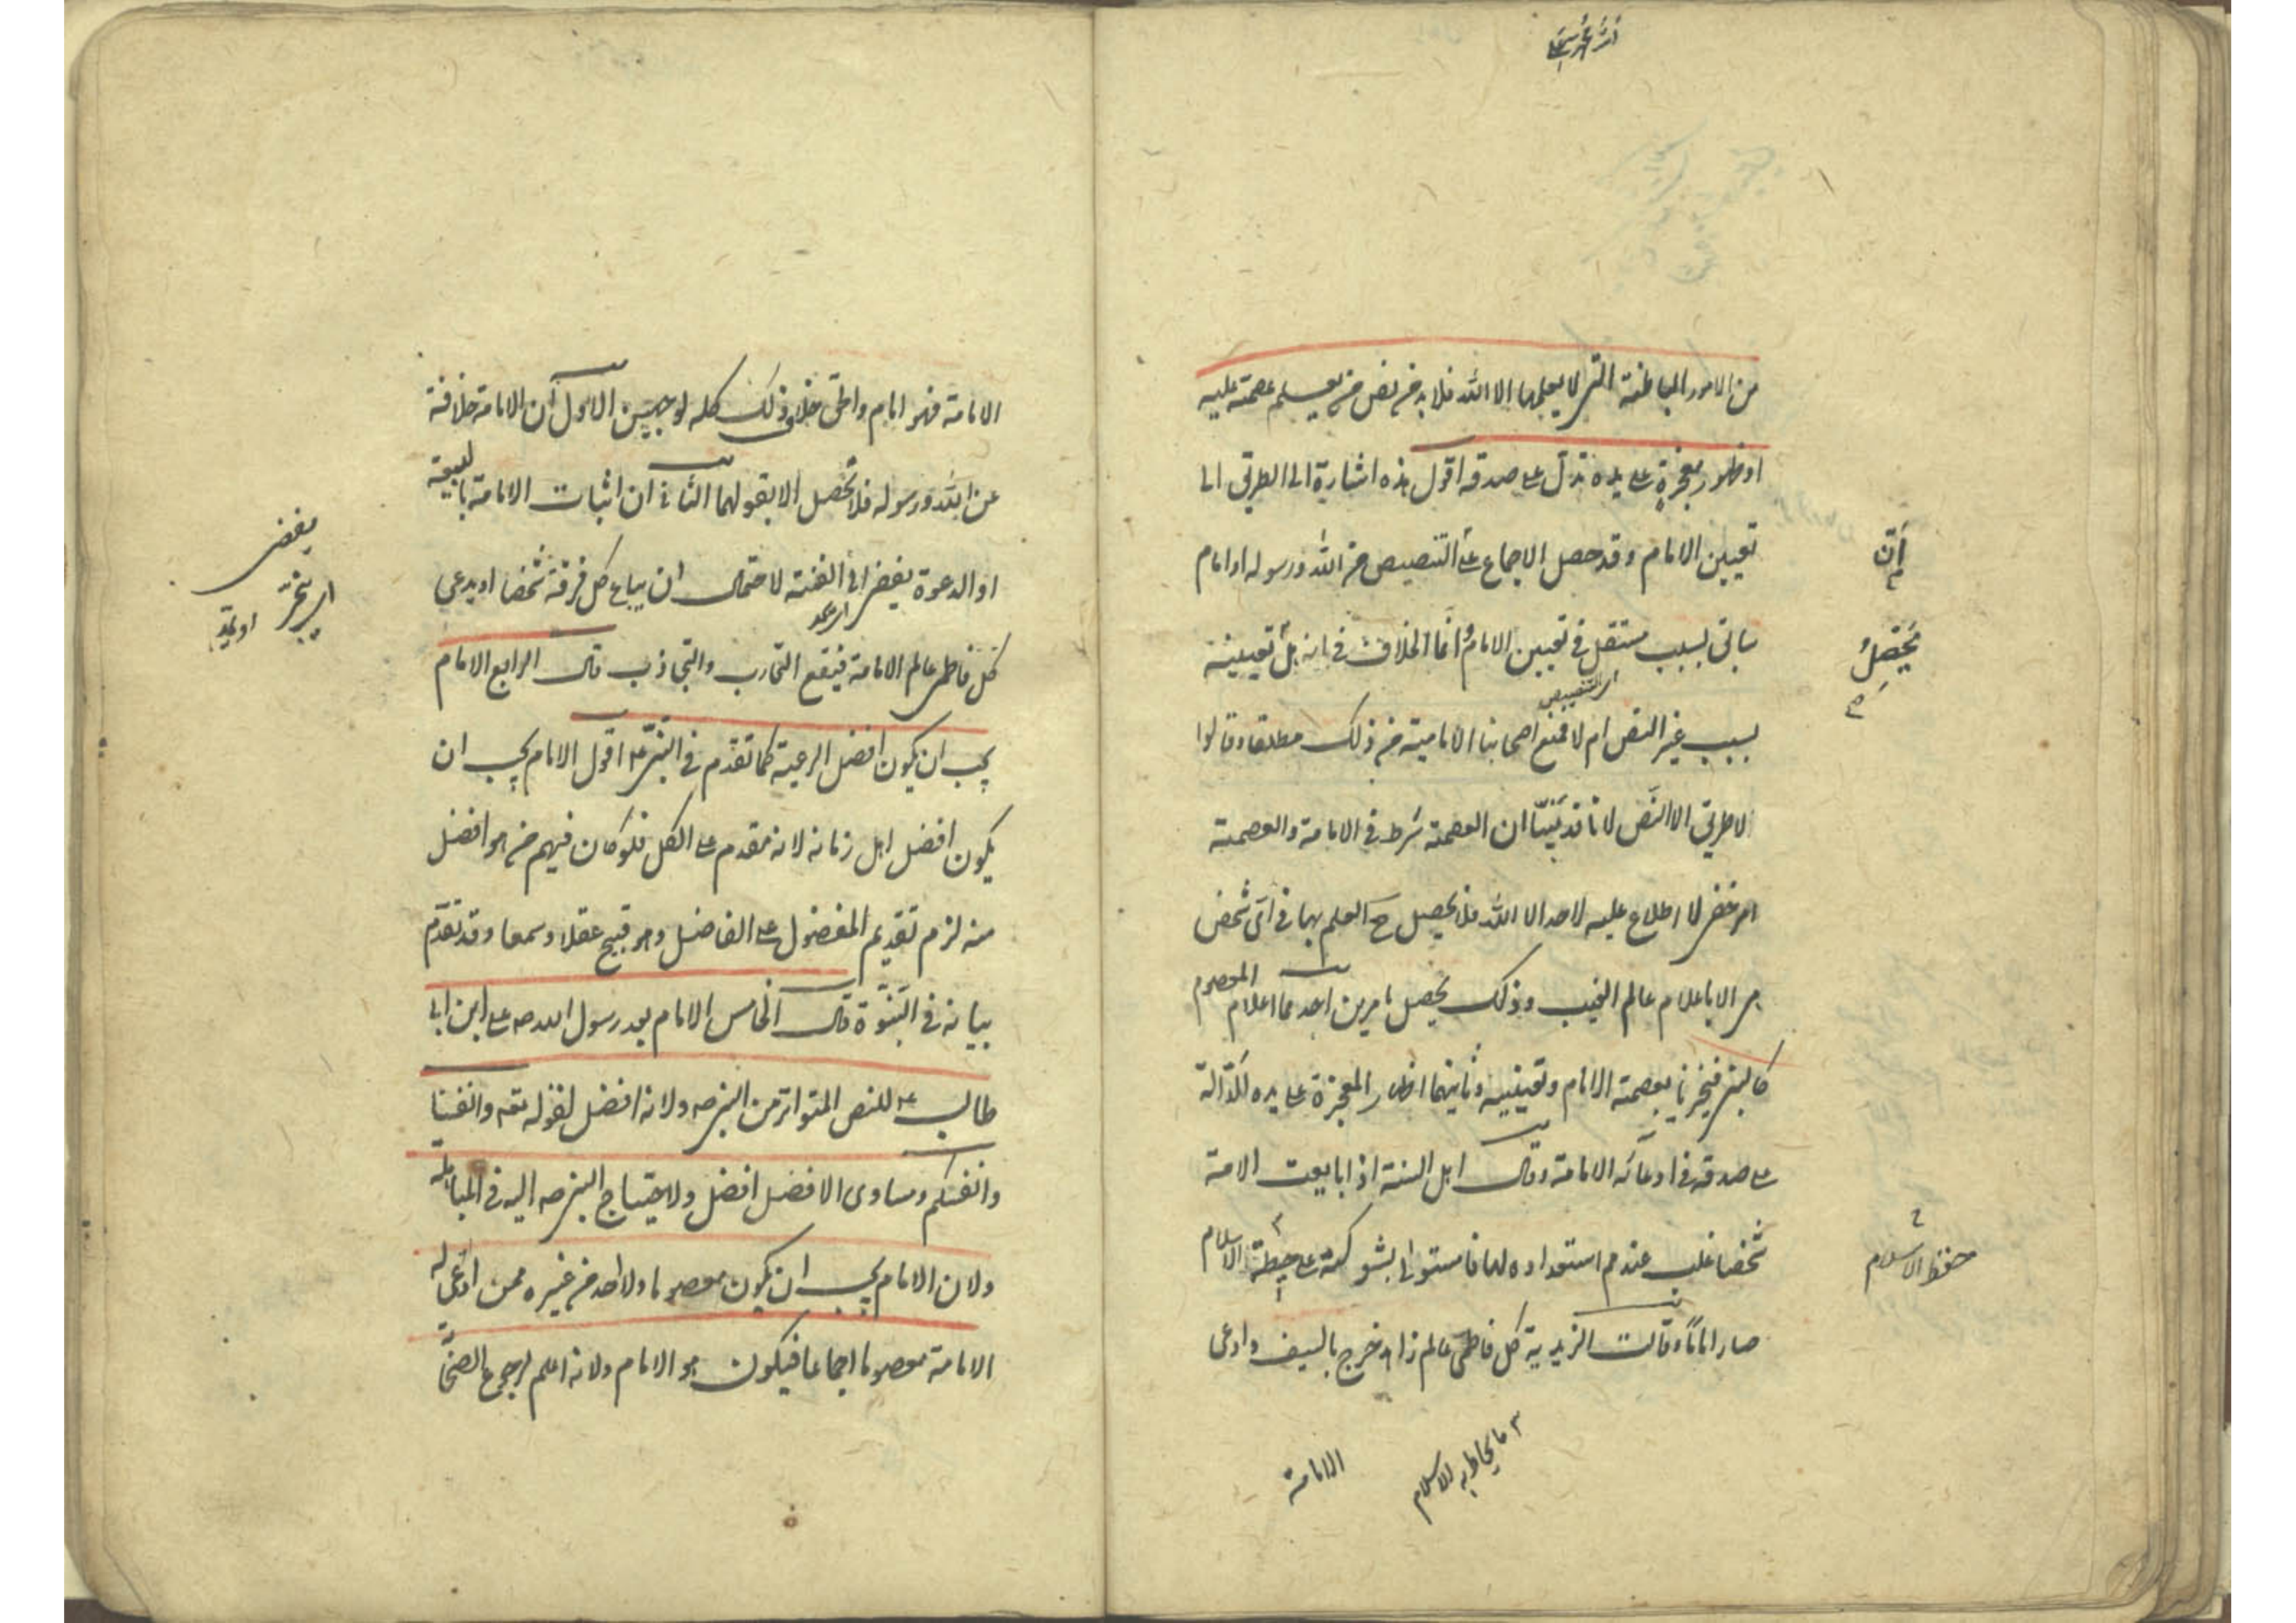 من الامور الباطنة التى لا يعلمها الا الله فلا بد من نص من يعلم عصمته عليه
او ظهور معجزة على يده تدل على صدقه اقول هذه اشارة الى الطريق الى
تعيين الامام وقد حصل الاجماع على التنصيص من الله ورسوله او امام
سابق بسبب مستقل فى تعيين الامام و انما الخلاف فى انه هل تعيينه
اى التنصيص
بسبب غير النص ام لا فمنع اصحابنا الامامية من ذلك مطلقا وقالوا
لا طريق الا النص لانا قد بينا ان العصمة شرط فى الامامة والعصمة
امر خفى لا اطلاع عليه لاحد الا الله فلا يحصل ح العلم بها فى اى شخص
هى الا باعلام عالم الغيب وذلك يحصل بامرين احدهما اعلام المعصوم
كالنبى فيخبرنا بعصمة الامام وتعيينه وثانيهما اظهار المعجزة على يده الدالة
على صدقه فى ادعائه الامامة وقال اهل السنة اذا بايعت الامة
شخصا غلب عندهم استعداده لها فاستولى بشوكته على حيطة الاسلام
صار اماما وقالت الزيدية كل فاطمى عالم زاهد خرج بالسيف وادعى
أن
يحصل
حفظ الاسلام
٣ ما يحاط به الاسلام
الامامة
الامامة فهو امام والحق خلاف ذلك كله لوجهين الاول ان الامامة خلافة
عن الله ورسوله فلا تحصل الا بقولهما الثانى ان اثبات الامامة بالبيعة
او الدعوة يفضى الى الفتنة لاحتمال ان يبايع كل فرقة شخصا او يدعى
كل فاطمى عالم الامامة فيقع التحارب والتجاذب قال الرابع الامام
يجب ان يكون افضل الرعية كما تقدم فى النبى ع اقول الامام يجب ان
يكون افضل اهل زمانه لانه مقدم على الكل فلو كان فيهم من هو افضل
منه لزم تقديم المفضول على الفاضل وهو قبيح عقلا وسمعا وقد تقدم
بيانه فى النبوة قال الخامس الامام بعد رسول الله صه على ابن ابى
طالب ع للنص المتواتر من النبى صه ولانه افضل لقوله تعه وانفسنا
وانفسكم ومساوى الافضل افضل ولاحتياج النبى صه اليه فى المباهلة
ولان الامام يجب ان يكون معصوما ولا احد من غيره ممن ادعى له
الامامة معصوما اجماعا فيكون هو الامام ولانه اعلم لرجوع الصحا
يفضى